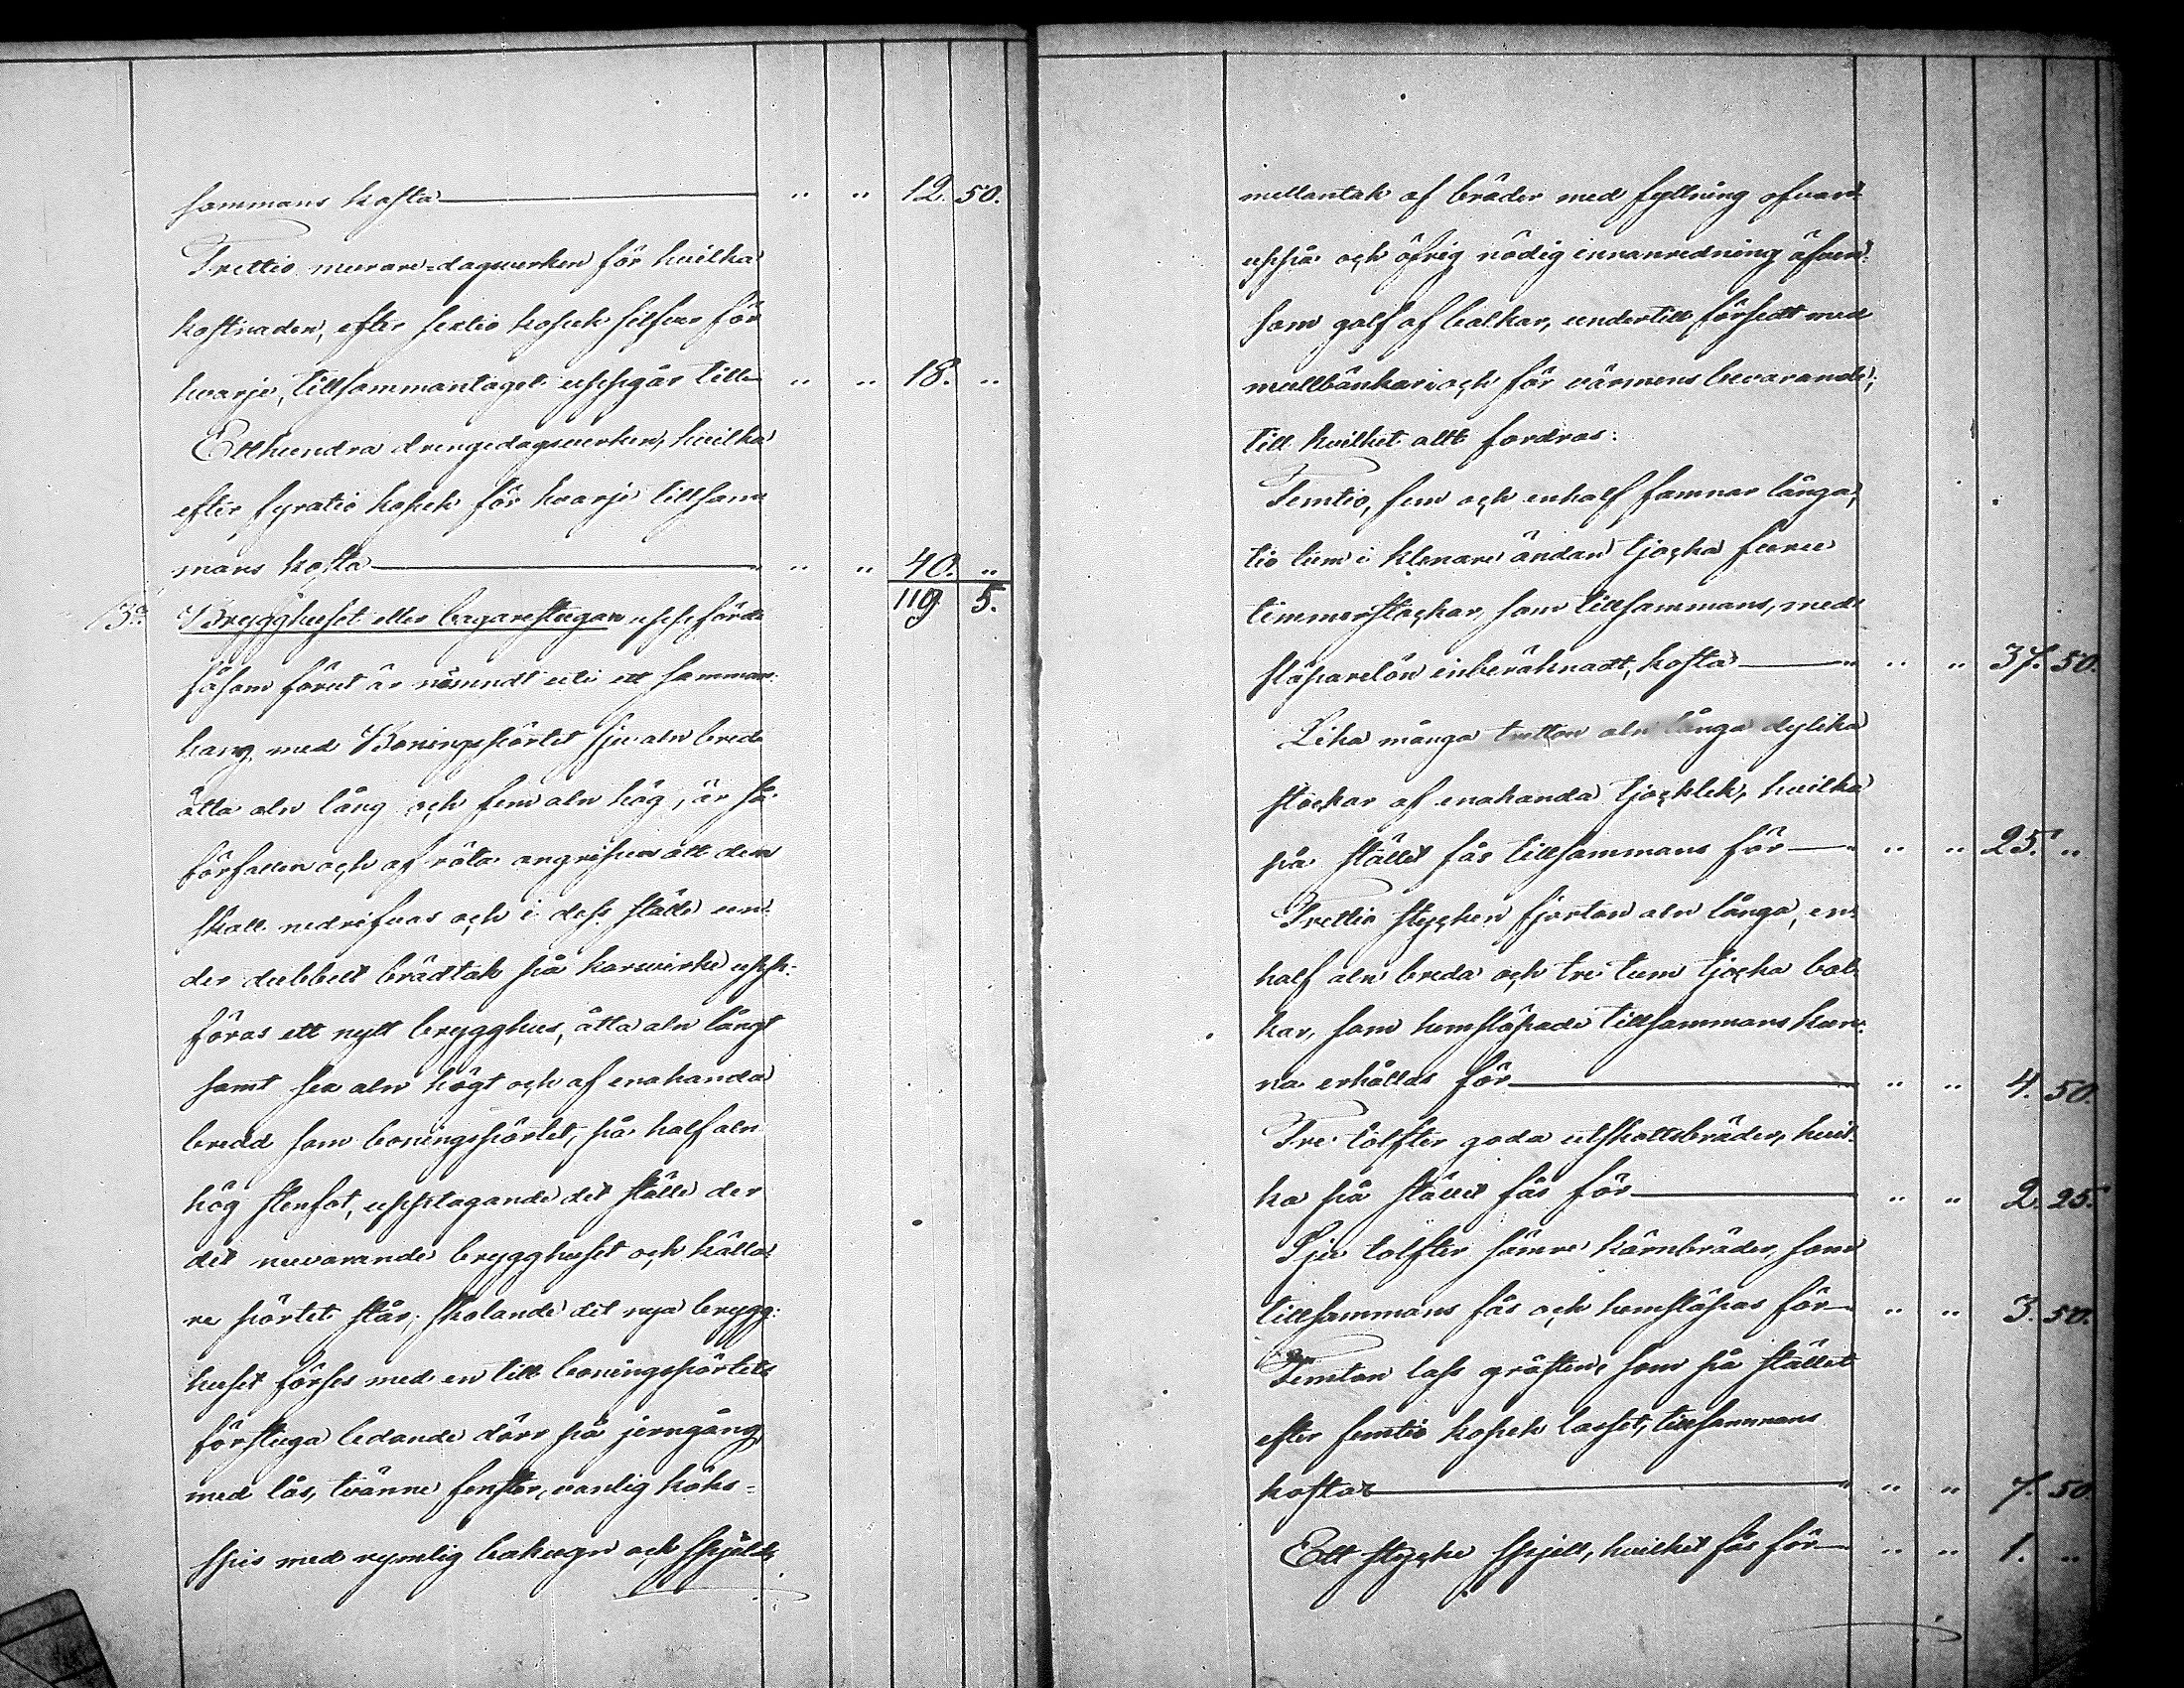 sammans kosta — " " 12. 50.
Trettio murare=dagsverken för hvilka
kostnaden, efter sextio kopek silfver för
hvarje, tillsammantaget uppgår till — " " 18. "
Etthundra drengedagsverken, hvilka
efter fyratio kopek för hvarje tillsam
mans kosta — " " 40. "
119 5.
3:o Brygghuset eller bagarestugan uppförd
såsom förut är nämndt uti ett samman-
hang med Boningspörtet sju aln bred
åtta aln lång och fem aln hög, är så
förfallen och af röta angripen att den
skall nedrifvas och i dess ställe un-
der dubbelt brädtak på korsvirke upp-
föras ett nytt brygghus, åtta aln långt
samt sex aln högt och af enahanda
bredd som boningspörtet, på half aln
hög stenfot, upptagande det ställe der
det nuvarande brygghuset och källa-
re pörtet står; skolande det nya brygg-
huset förses med en till boningspörtets
förstuga ledande dörr på jerngång
med lås, tvänne fenster, vanlig köks=
spis med rymlig bakugn och spjäld,
mellantak af bräder med fyllning ofvan-
uppå och öfrig nödig innanredning äfven-
som golf af balkar, undertill försedt med
mullbänkar och för värmens bevarande;
till hvilket allt fordras:
Femtio, fem och enhalf famnar långa,
tio tum i klenare ändan tjocka furu
timmerstockar, som tillsammans, med
släparelön inberäknadt, kosta — " " 37. 50.
Lika många tretton aln långa dylika
stockar af enahanda tjocklek, hvilka
på stället fås tillsammans för — " " 25. "
Trettio stycken fjorton aln långa, en
half aln breda och tre tum tjocka bal-
kar, som hemsläpade tillsammans kun-
na erhållas för — " " 4. 50.
Tre tolfter goda utskottsbräder, hvil-
ka på stället fås för — " " 2. 25.
Sju tolfter sämre kärnbräder, som
tillsammans fås och hemsläpas för — " " 3. 50.
Femton lass gråsten, som på stället
efter femtio kopek lasset, tillsammans
kostar — " " 7. 50.
Ett stycke spjell, hvilket fås för — " " 1. "